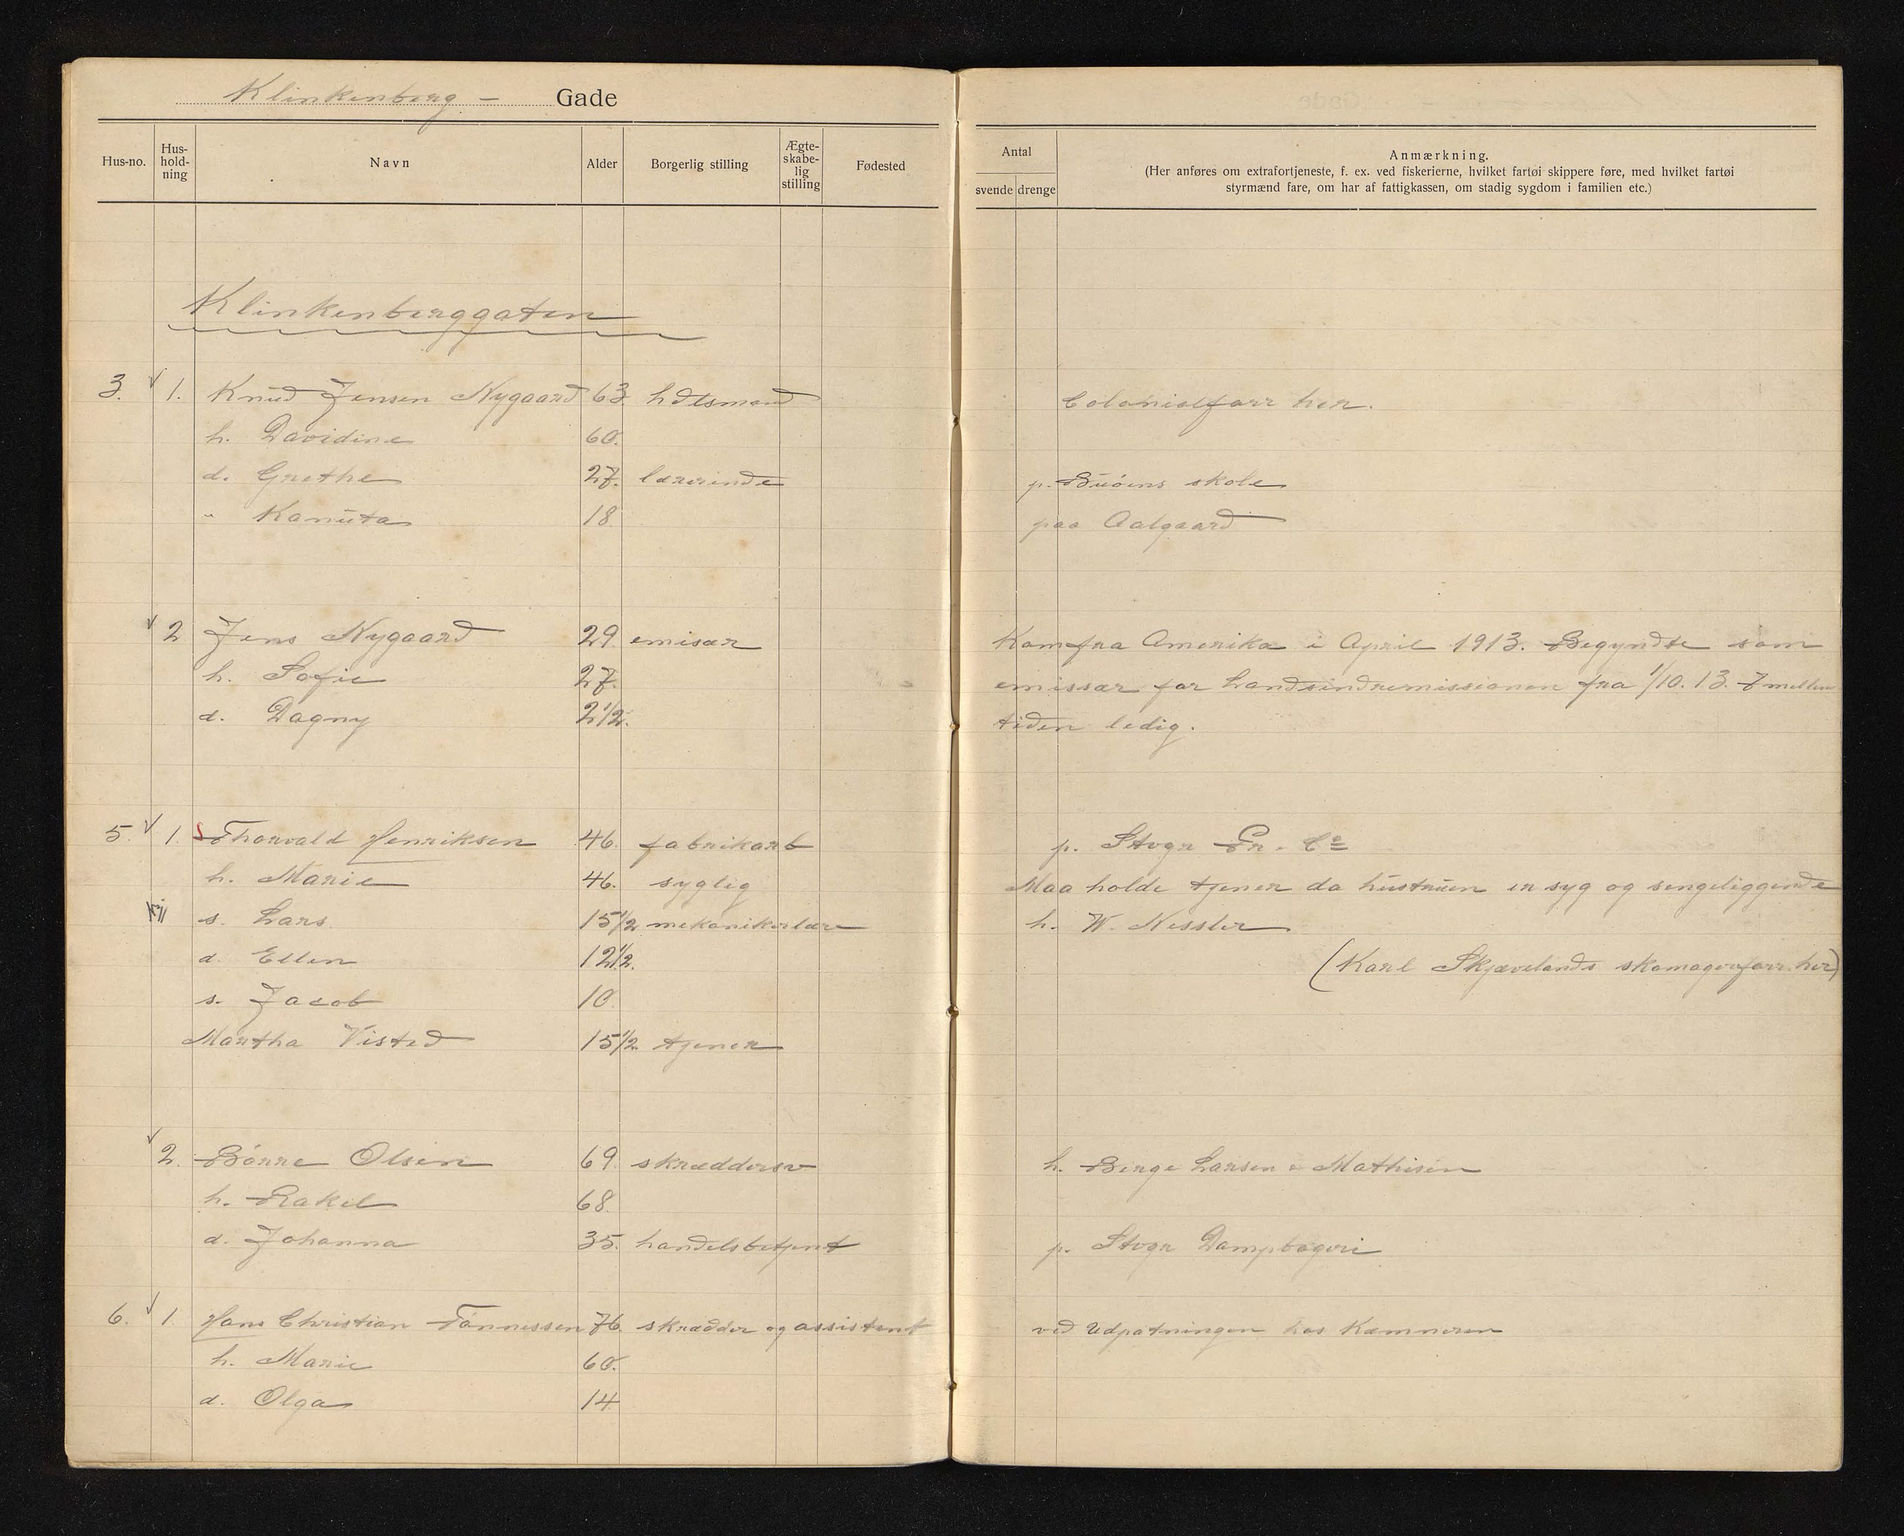 Klinkenberg - Gade
Hus-no. Hus-hold-ning Navn Alder Borgerlig stilling Ægte-skabe-lig stilling Fødested Antal svende drenge Anmærkning.
(Her anføres om extrafortjeneste, f. ex. ved fiskerierne, hvilket fartøi skippere føre, med hvilket fartøi
styrmænd fare, om har af fattigkassen, om stadig sygdom i familien etc.)
Klinkenberggaten
3. √ 1. Knud Jensen Nygaard 63. hdlsmand Colonialforr her.
h. Davidine 60.
d. Grethe 27. lærerinde p. Buøens skole
" Kanuta 18 paa Aalgaard
√ 2 Jens Nygaard 29 emisær Kom fra Amerika i April 1913. Begyndte som
h. Sofie 27. emissær for Landsindremissionen fra 1/10. 13. I mellem
d. Dagny 2 1/2. tiden ledig.
5. √ 1. Thorvald Henriksen 46. fabrikarb p. Stvgr Pr. Co
h. Marie 46. syglig Maa holde tjener da hustruen er syg og sengeliggende
s. Lars 15 1/2 mekanikerlære h. W. Nessler
d. Ellen 12 1/2. (Karl Skjævelands skomagerforr. her)
s. Jacob 10.
Martha Visted 15 1/2. tjener
√ 2. Børre Olsen 69. skræddersv h. Berge Larsen & Mathisen
h. Rakel 68.
d. Johanna 35. handelsbetjent p. Stvgr Dampbageri
6. √ 1. Hans Christian Tønnessen 76. skrædder og assistent ved Udpatningen hos Kæmneren
h. Marie 60.
d. Olga 14